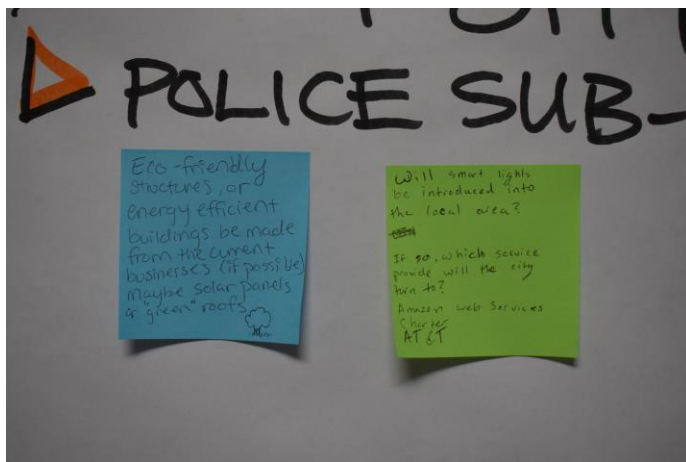 POLICE SUB-
Eco-friendly
structures, or
energy efficient
buildings be made
from the current
businesses (if possible)
maybe solar panels
or "green" roofs
Will smart lights
be introduced into
the local area?
If so, which service
provide will the city
turn to?
Amazon Web Services
Charter
AT&T